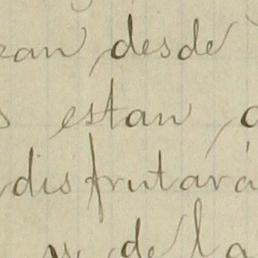 desde
estan
disfrutará
y de la